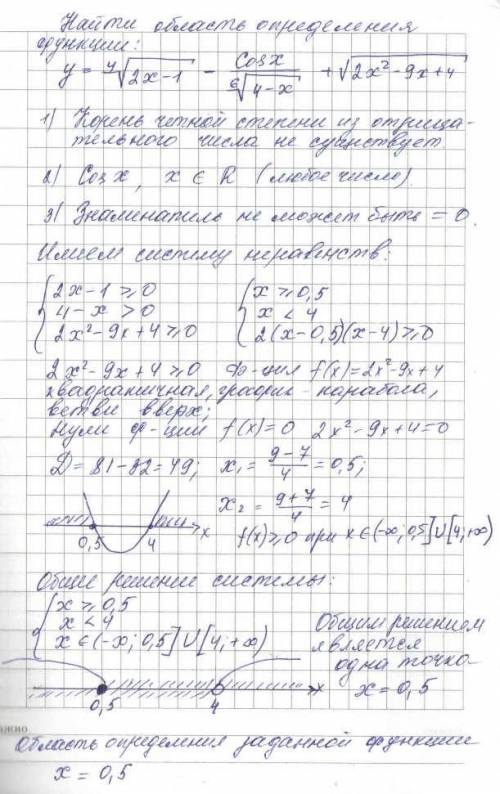 Найти область определения
функции:
y = ⁴√(2x-1) - cos x / ⁶√(4-x) + √(2x²-9x+4)
1) Корень четной степени из отрица-
тельного числа не существует
2) Cos x, x ∈ R (любое число).
3) Знаменатель не может быть = 0.
Имеем систему неравенств:
{ 2x-1 ≥ 0 { x ≥ 0,5
4-x > 0 x < 4
2x²-9x+4 ≥ 0 2(x-0,5)(x-4) ≥ 0
2x²-9x+4 ≥ 0 Ф-ция f(x)=2x²-9x+4
квадратичная, график - парабола,
ветви вверх;
Нули ф-ции f(x)=0 2x²-9x+4=0
D = 81-32=49; x₁ = (9-7)/4 = 0,5;
x₂ = (9+7)/4 = 4
0,5 4 x
f(x) ≥ 0 при x ∈ (-∞; 0,5] ∪ [4; +∞)
Общее решение системы:
{ x ≥ 0,5
x < 4
x ∈ (-∞; 0,5] ∪ [4; +∞)
Общим решением
является
одна точка
x = 0,5
0,5 4 x
Область определения заданной функции
x = 0,5